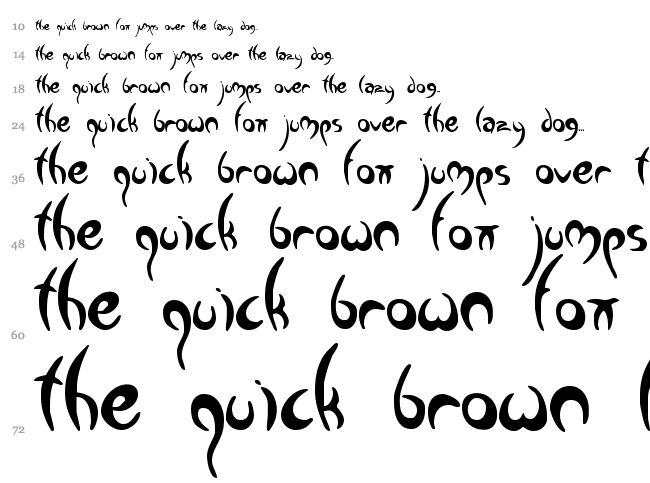 10 the quick brown fox jumps over the lazy dog...
14 the quick brown fox jumps over the lazy dog...
18 the quick brown fox jumps over the lazy dog...
24 the quick brown fox jumps over the lazy dog...
36 the quick brown fox jumps over t
48 the quick brown fox jumps
60 the quick brown fox
72 the quick brown